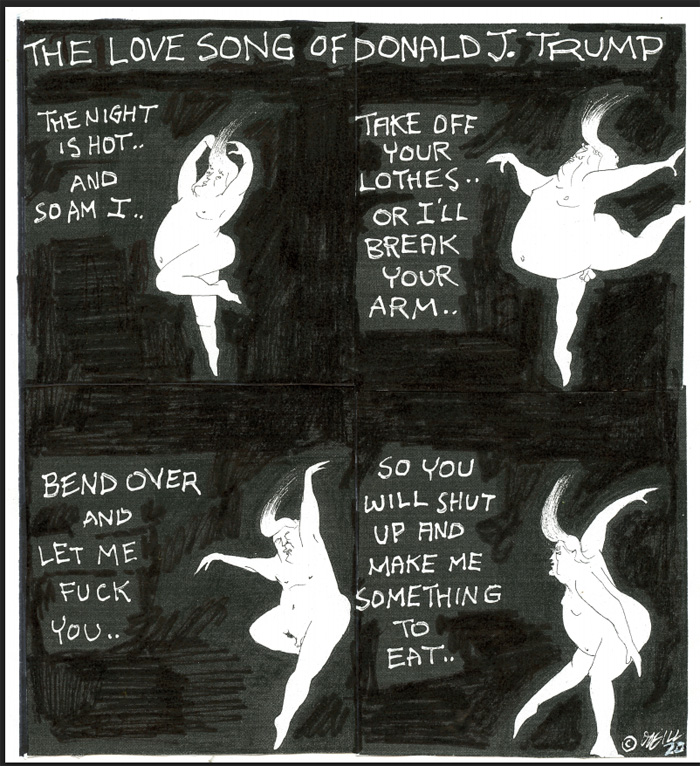 THE LOVE SONG OF DONALD J. TRUMP
THE NIGHT
IS HOT..
AND
SO AM I..
TAKE OFF
YOUR
LOTHES..
OR I'LL
BREAK
YOUR
ARM..
BEND OVER
AND
LET ME
FUCK
YOU..
SO YOU
WILL SHUT
UP AND
MAKE ME
SOMETHING
TO
EAT..
© O'NEILL
20